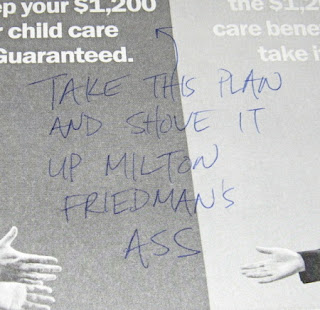 ep your $1,200
r child care
Guaranteed.
the $1,2
care bene
take i
TAKE THIS PLAN
AND SHOVE IT
UP MILTON
FRIEDMAN'S
ASS